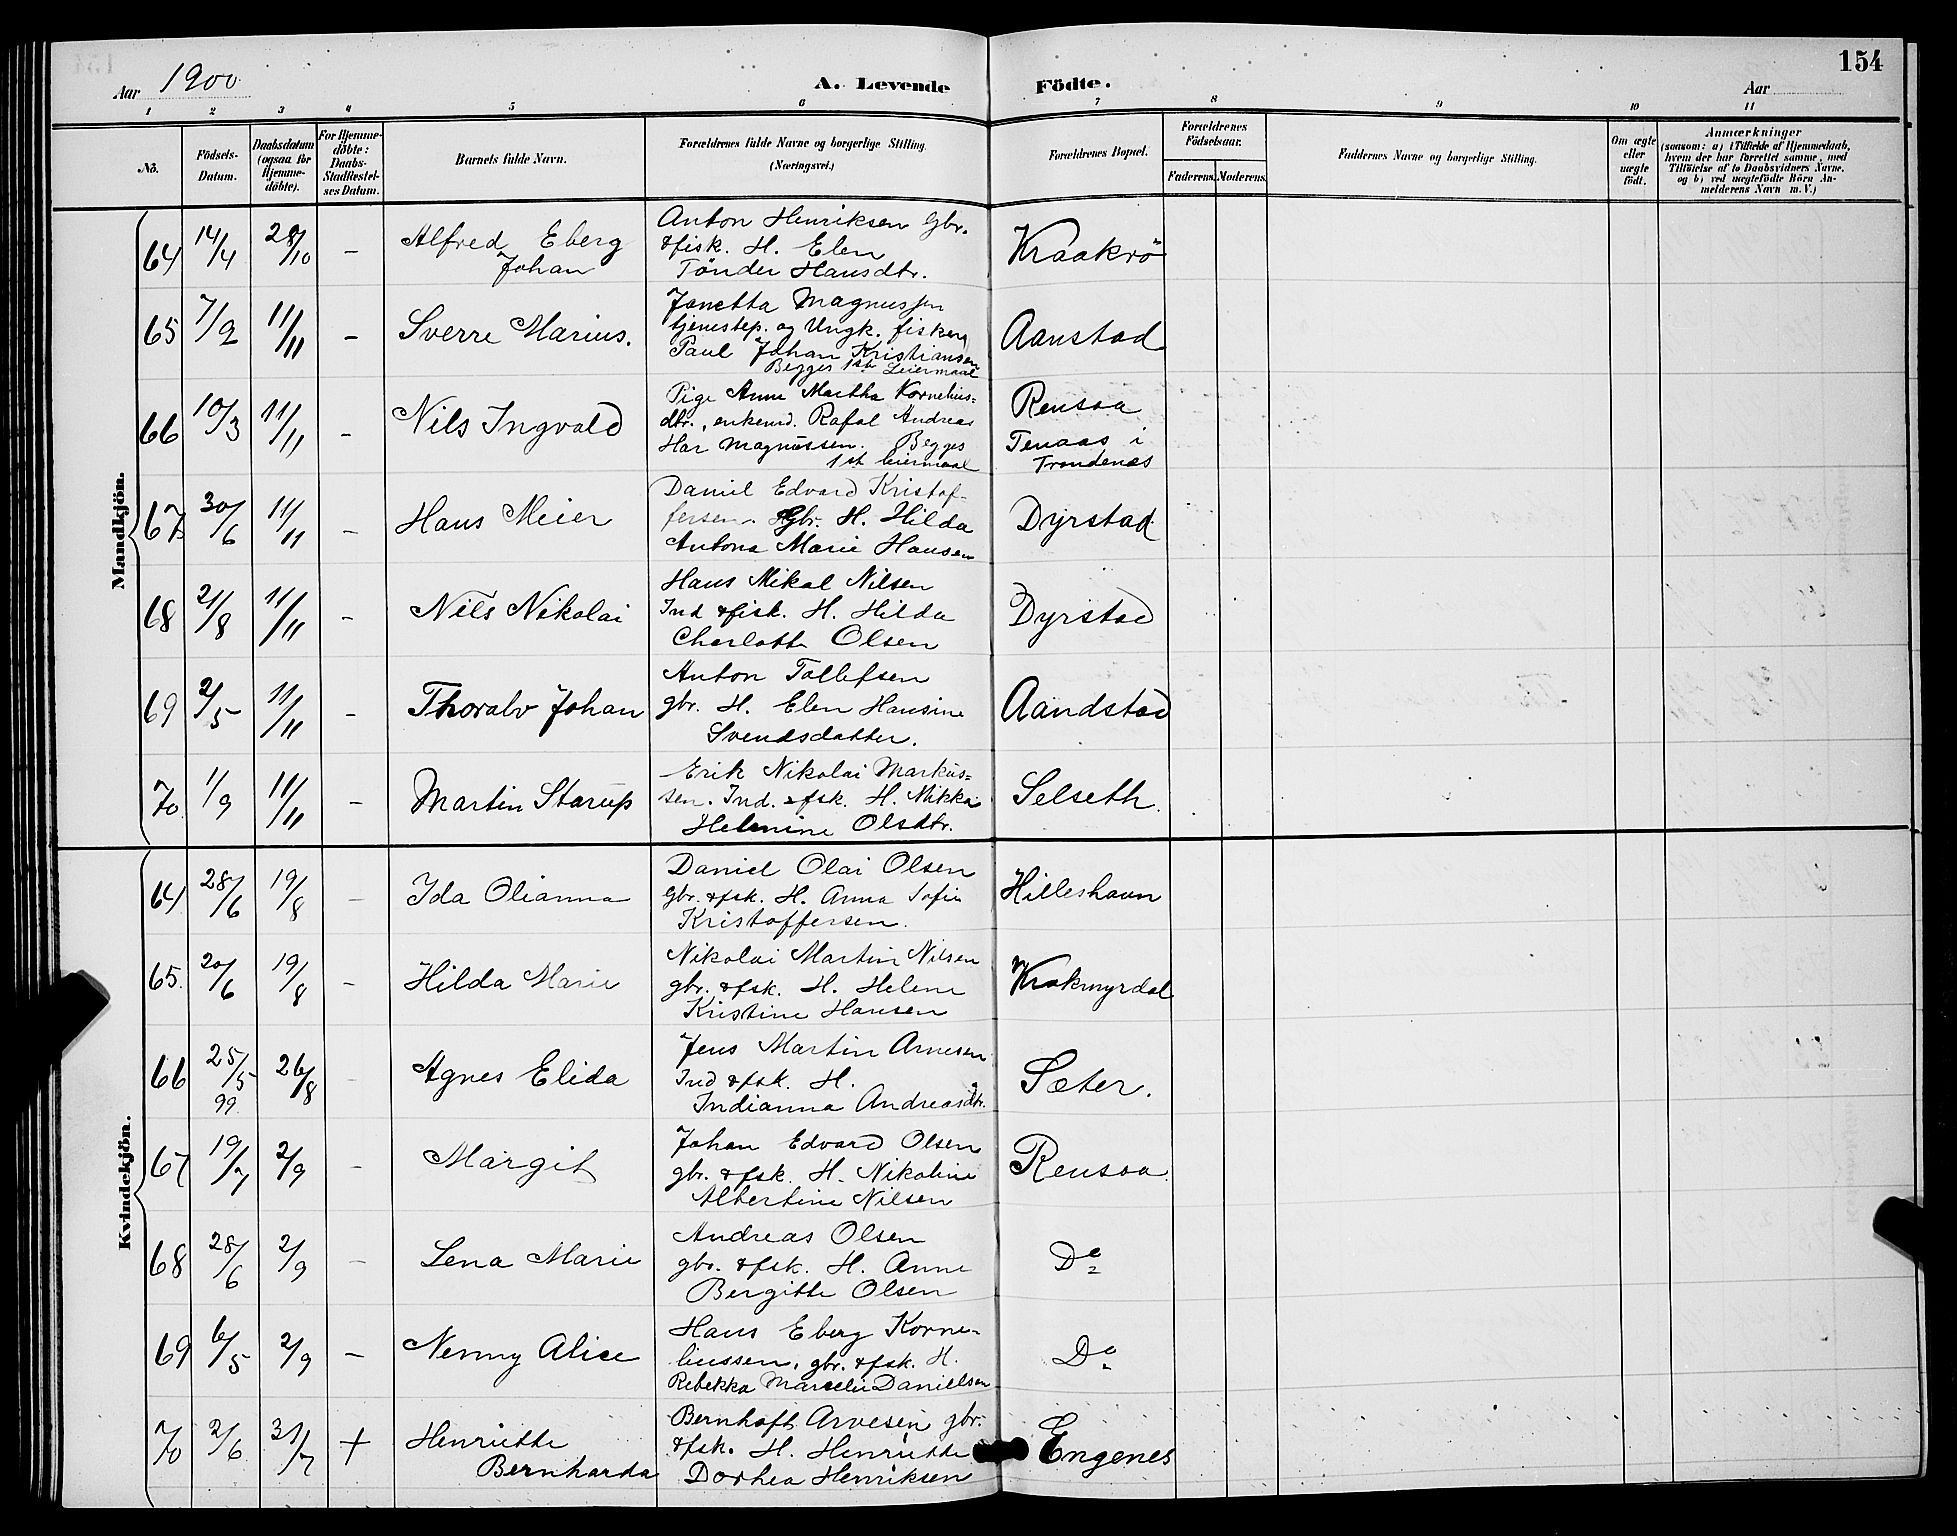 Aar 1900.
A. Levende Födte.
154
Aar
1 2 3 4 5 6 7 8 9 10 11
No.
Födsels-Datum.
Daabsdatum (ogsaa för Hjemme-döbte).
For Hjemme-döbte: Daabs-Stadfæstel-ses Datum.
Barnets fulde Navn.
Forældrenes fulde Navne og borgerlige Stilling. (Næringsvei.)
Forældrenes Bopæl.
Forældrenes Födselsaar.
Faderens. Moderens.
Faddernes Navne og borgerlige Stilling.
Om ægte eller uægte födt.
Anmærkninger
(saasom: a) i Tilfælde af Hjemmedaab,
hvem der har forrettet samme, med
Tilföielse af to Daabsvidners Navne,
og b) ved uægtefödte Börn An-
melderens Navn m. V.)
Mandkjön.
64 14/4 28/10 - Alfred Eberg Johan
Anton Henriksen Gbr.
& fisk. H. Elen
Tönder Hansdtr.
Kraakrö
65 7/2 11/11 - Sverre Marius.
Janetta Magnussen
tjenestep. og Ungk. fisker
Paul Johan Kristiansen
Begges 1ste Leiermaal
Aanstad
66 10/3 11/11 - Nils Ingvald
Pige Anne Martha Kornelius-
dtr., enkemd. Rafal Andreas
Har Magnussen. Begges
1st leiermaal
Rensaa
Tenaas i
Trondenes
67 30/6 11/11 - Hans Meier
Daniel Edvard Kristof-
fersen. Gbr. H. Hilda
Antona Marie Hansen
Dyrstad
68 21/8 11/11 - Nils Nikolai
Hans Mikal Nilsen
Ind & fisk. H. Hilda
Charlotte Olsen
Dyrstad
69 2/5 11/11 - Thoralv Johan
Anton Tollefsen
gbr. H. Elen Hansine
Svendsdatter.
Aandstad
70. 1/9 11/11 - Martin Starup
Erik Nikolai Markus-
sen. Ind. & fsk. H. Mikka
Helmine Olsdtr.
Selseth.
Kvindekjön.
64 28/6 19/8 - Ida Olianna
Daniel Olai Olsen
Gbr. & fsk. H. Anna Sofie
Kristoffersen.
Hilleshavn
65. 20/6 19/8 - Hilda Marie
Nikolai Martin Nilsen
gbr. & fsk. H. Helene
Kristine Hansen
Krakmyrdal
66 25/5 99 26/8 - Agnes Elida
Jens Martin Arnesen
Ind & fsk. H.
Indianna Andreasdtr.
Sæter.
67 19/7 2/9 - Margit
Johan Edvard Olsen
gbr. & fsk. H. Nikoline
Albertine Nilsen
Rensaa
68 28/6 2/9 - Lena Marie
Andreas Olsen
gbr. & fsk. H. Anne
Bergitte Olsen
Do
69 6/5 2/9 - Nenny Alice
Hans Eberg Korne-
liussen, gbr. & fsk. H.
Rebekka Marcelie Danielsen
Do
70 2/6 31/7 + Henriette Bernharda
Bernhoft Arvesen gbr.
& fsk. H. Henriette
Dorhea Henriksen
Engenes